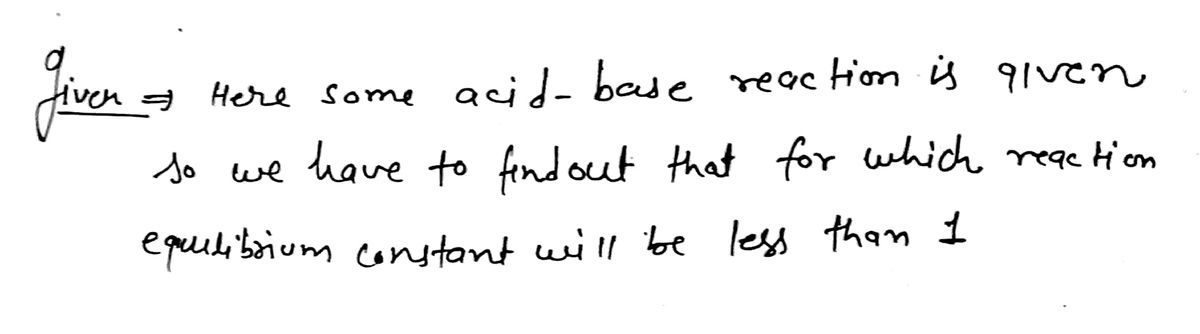 Given ⇒ Here some acid-base reaction is given
so we have to find out that for which reaction
equilibrium constant will be less than 1